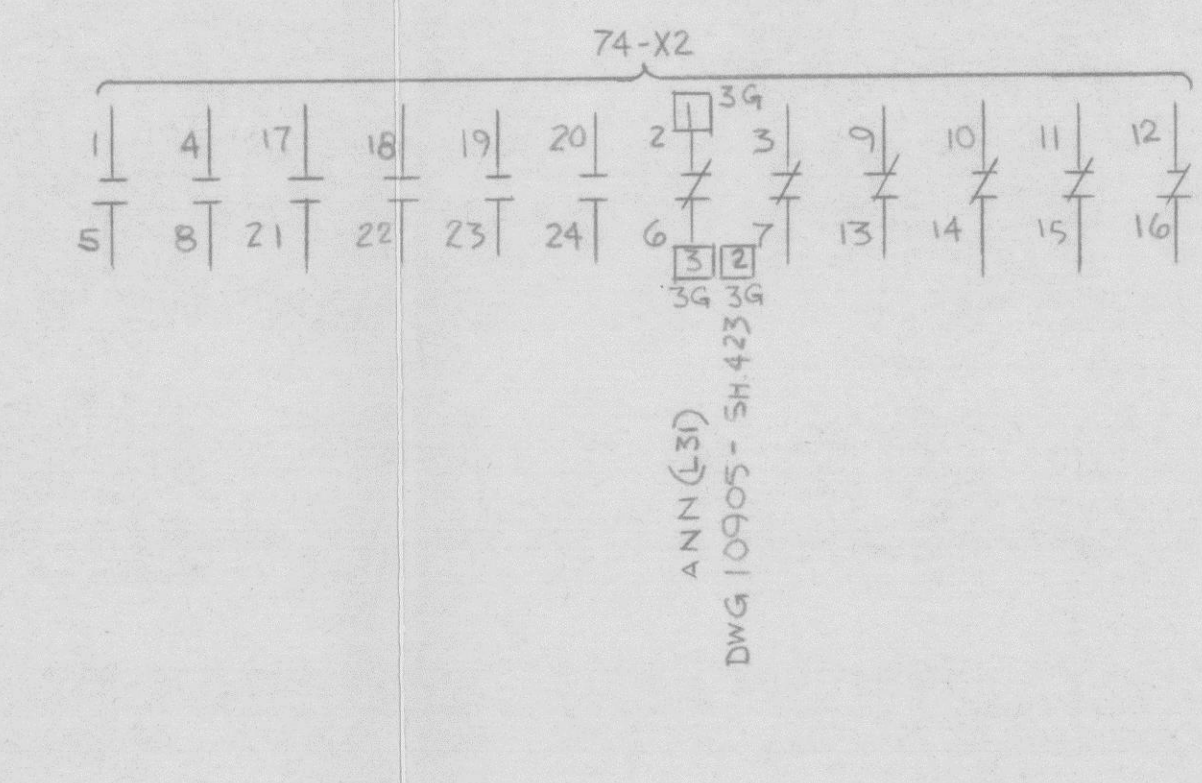 74-X2
1 4 17 18 19 20 2 1 3G 3 9 10 11 12
5 8 21 22 23 24 6 7 13 14 15 16
3 2
3G 3G
ANN (L31)
DWG 10905- SH.423